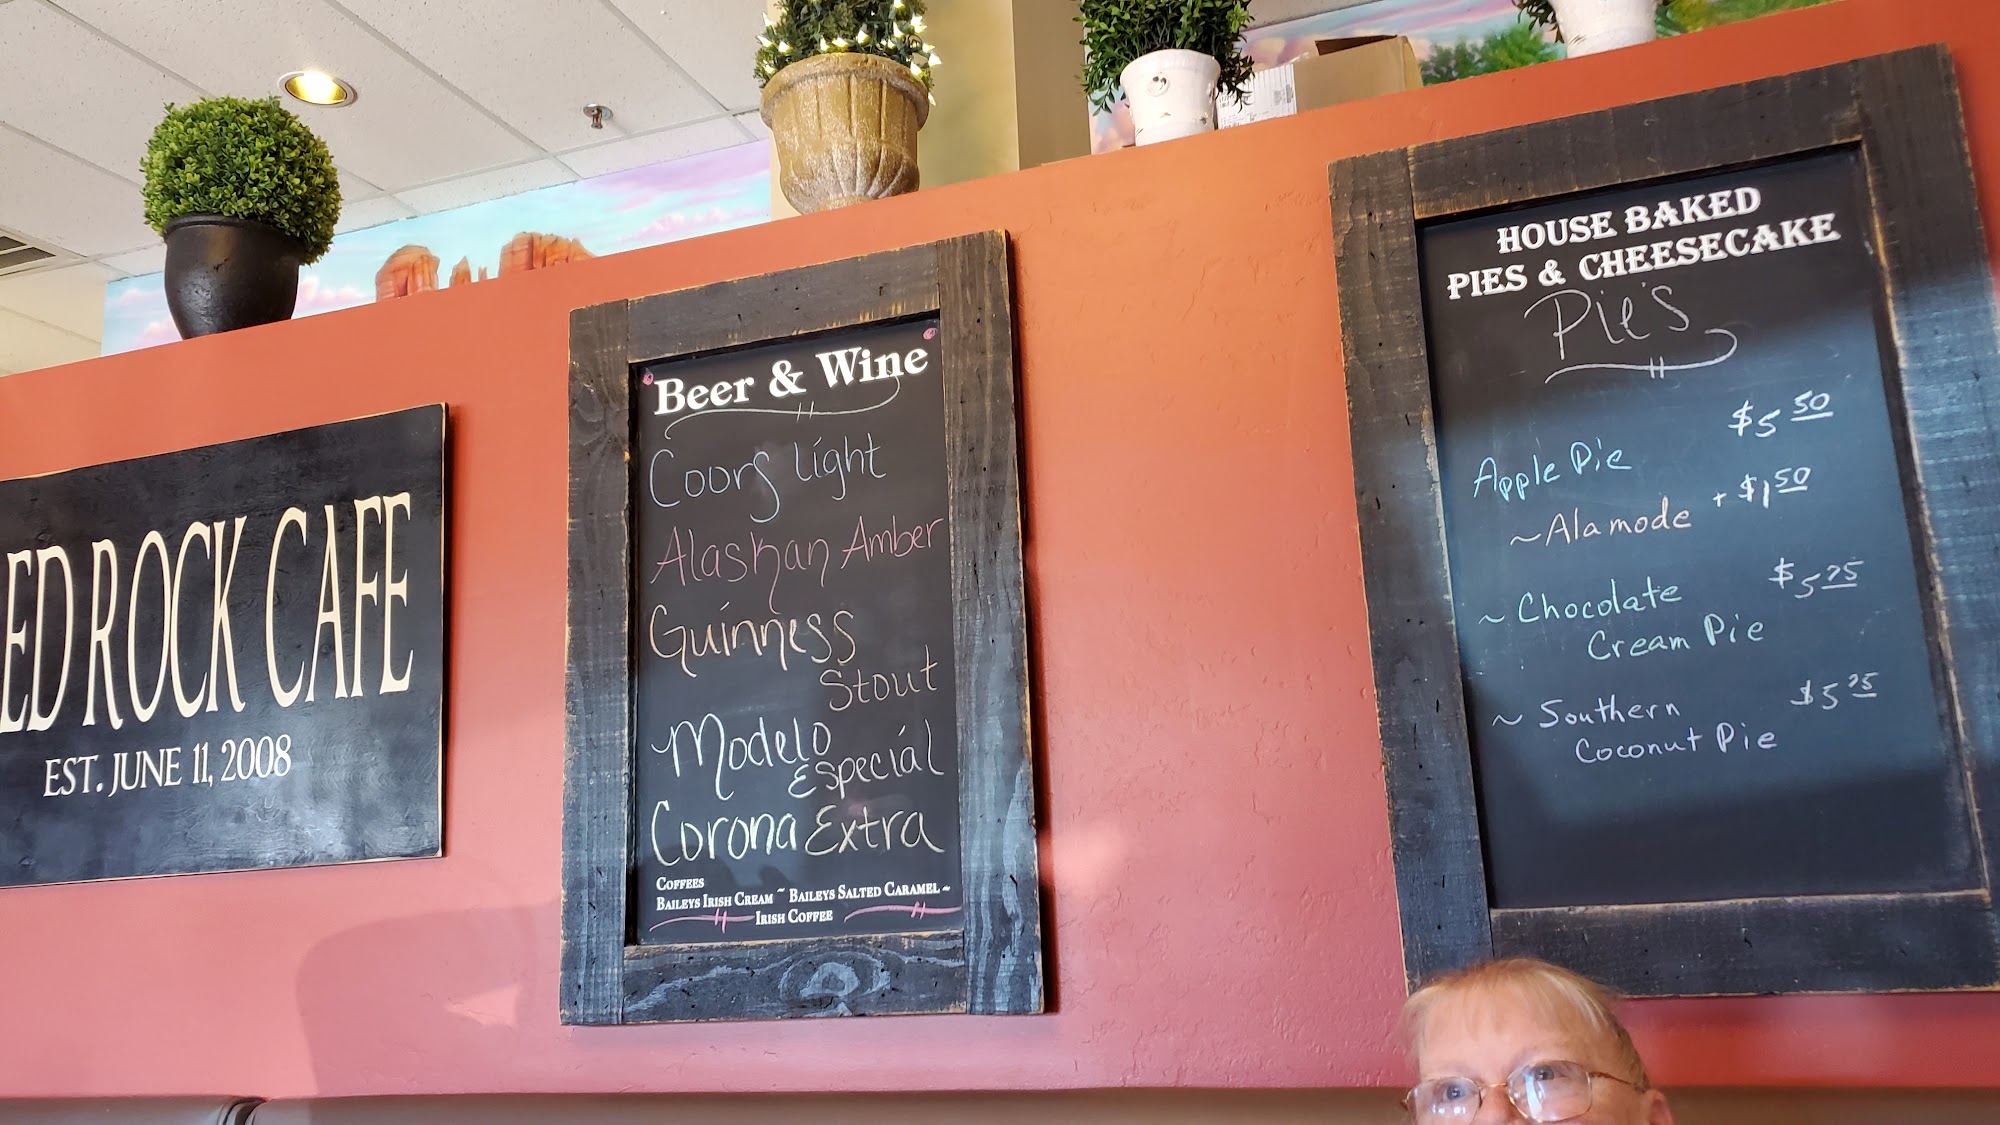 ED ROCK CAFE
EST. JUNE 11, 2008
Beer & Wine
Coors light
Alaskan Amber
Guinness
Stout
Modelo
Especiál
Corona Extra
COFFEES
BAILEYS IRISH CREAM ~ BAILEYS SALTED CARAMEL ~
IRISH COFFEE
HOUSE BAKED
PIES & CHEESECAKE
Pie's
Apple Pie $5 50
~ Alamode + $1 50
~ Chocolate $5 75
Cream Pie
~ Southern $5 25
Coconut Pie